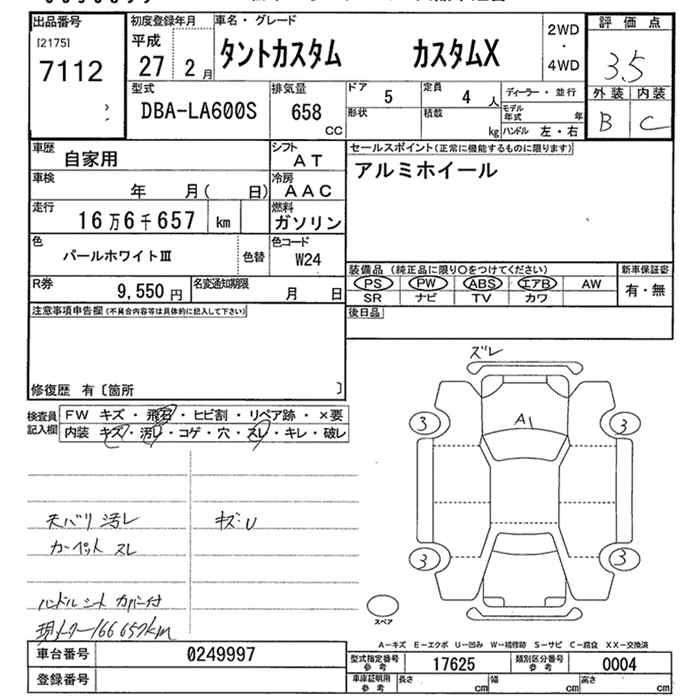 出品番号
[2175]
7112
初度登録年月
平成
27 2月
車名・グレード
タントカスタム カスタムX
2WD
・
4WD
評価点
3.5
外装 内装
B C
型式
DBA-LA600S
排気量
658
CC
ドア
5
定員
4 人
形状
積載
kg
ディーラー・並行
モデル年式 年
ハンドル 左・右
車歴
自家用
シフト
AT
車検
年 月( 日)
冷房
AAC
走行
16万6千657 km
燃料
ガソリン
色
パールホワイトⅢ
色替
色コード
W24
R券
9,550円
名変通知期限
月 日
セールスポイント(正常に機能するものに限ります)
アルミホイール
装備品 (純正品に限り○をつけてください)
PS PW ABS エアB AW
SR ナビ TV カワ
新車保証書
有・無
後日品
注意事項申告欄(不具合内容等は具体的に記入して下さい)
修復歴 有〔箇所 〕
検査員記入欄
FW キズ・飛石・ヒビ割・リペア跡・×要
内装 キズ・汚レ・コゲ・穴・スレ・キレ・破レ
天バリ 汚レ
カーペット スレ
キズ・U
ハンドル シート カバー付
現メーター166657km
ズレ
A1
3
3
3
3
スペア
A-キズ E-エクボ U-凹み W-補修跡 S-サビ C-腐食 XX-交換済
車台番号 0249997
登録番号
型式指定番号参考 17625
類別区分番号参考 0004
車庫証明用参考 長さ cm 幅 cm 高さ cm